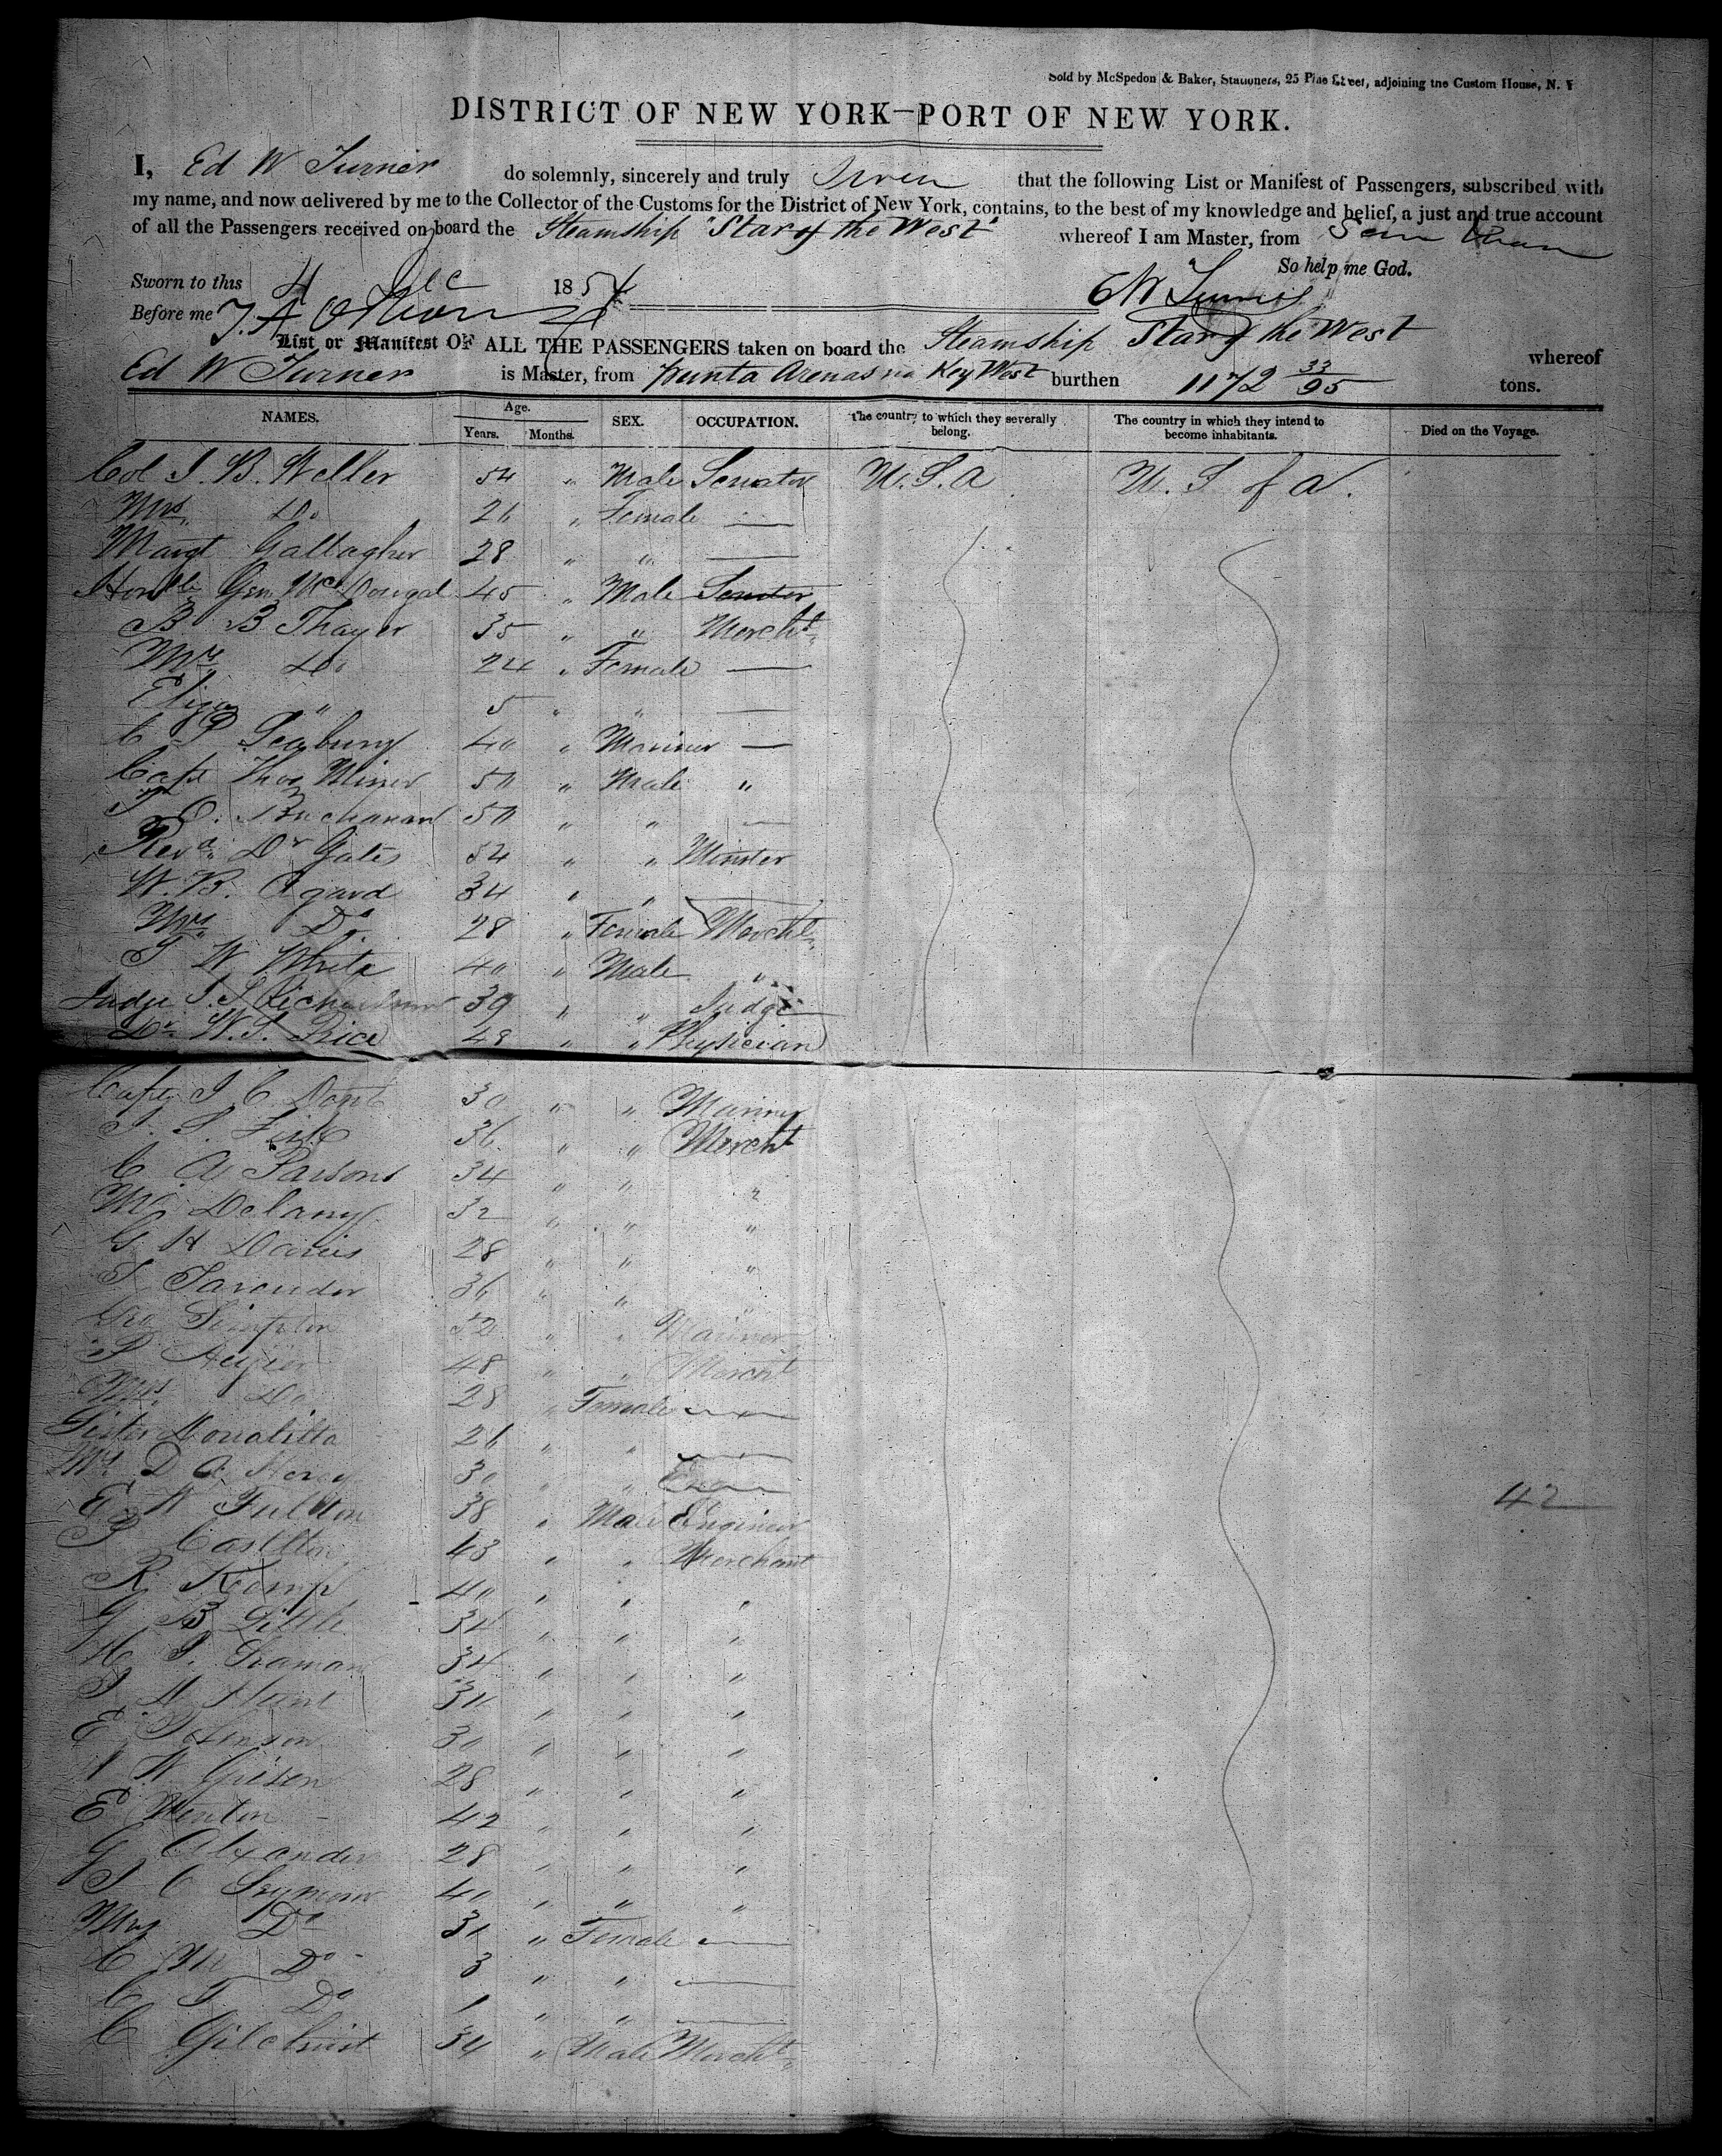 Sold by McSpedon & Baker, Stationers, 25 Pine Street, adjoining the Custom House, N. Y
DISTRICT OF NEW YORK—PORT OF NEW YORK.
I, Ed W Turner do solemnly, sincerely and truly that the following List or Manifest of Passengers, subscribed with
my name, and now delivered by me to the Collector of the Customs for the District of New York, contains, to the best of my knowledge and belief, a just and true account
of all the Passengers received on board the Steamship "Star of the West" whereof I am Master, from San Juan
So help me God.
Sworn to this 4 Dec 1854
Before me
List or Manifest OF ALL THE PASSENGERS taken on board the Steamship Star of the West whereof
Ed W Turner is Master, from Punta Arenas via Key West burthen 1172 33/95 tons.
NAMES. Age. Years. Months. SEX. OCCUPATION. The country to which they severally belong. The country in which they intend to become inhabitants. Died on the Voyage.
Col I. B. Weller 54 " Male Senator U. S. A U. S of A.
Mrs Do 26 " Female —
Margt Gallagher 28 " " —
Honble Gen McDougal 45 " Male Senator
B B Thayer 35 " " Mercht
Mrs Do 24 " Female —
Eliza " 5 " " —
C P Seabury 40 " Mariner —
Capt Thos Miner 50 " Male "
Buchanan 50 " " —
Revd Dr Gates 54 " " Minster
W. B. Agard 34 " "
Mrs Do 28 " Female Mercht
T W White 40 " Male "
Judge I. S Richardson 39 " " Judge
Dr W. S. Rice 48 " " Physician
Capt I C 30 " " Mariner
I. S. 36 " " Mercht
C A Parsons 34 " " "
M Delany 32 " " "
G H Davis 28 " " "
36 " " "
Geo 52 " " Mariner
48 " " Mercht
Mrs Do 28 " Female —
Sister 26 " " —
Mrs D A 30 " " —
E W Fulton 38 " Male Engineer 42
43 " " Merchant
R Kemp 40 " " "
G B Little 34 " " "
H 34 " " "
" " "
E 30 " " "
W 28 " " "
E 42 " " "
G Alexander 28 " " "
I C Seymour 40 " " "
Mrs Do " Female —
C M Do 3 " " —
C T Do 1 " " —
C Gilchrist 34 " Male Mercht